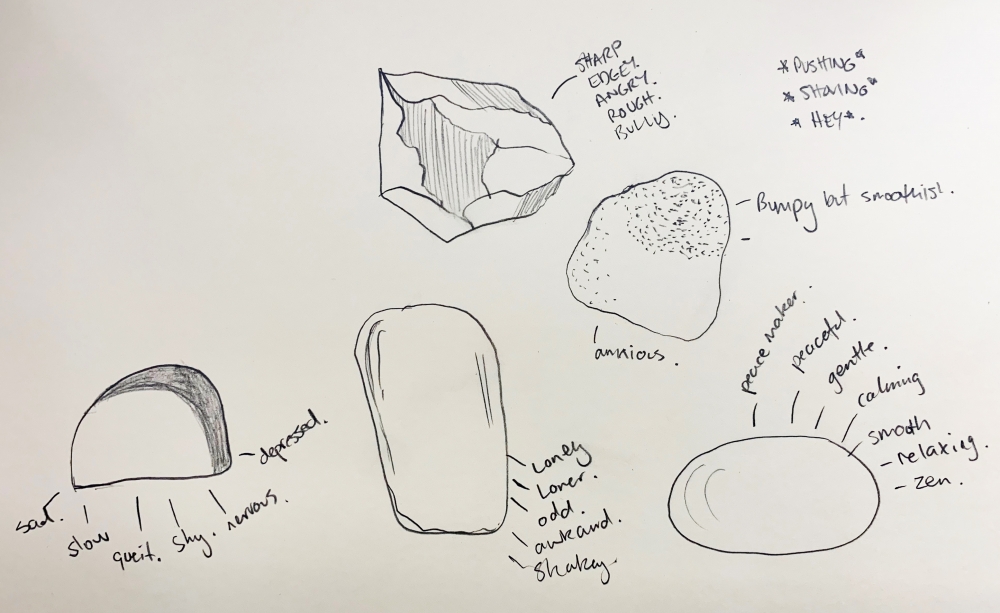 SHARP
EDGEY.
ANGRY.
ROUGH.
BULLY.
*PUSHING*
*SHOVING*
*HEY*.
Bumpy but smoothish.
anxious.
peace maker.
peaceful.
gentle.
calming
smooth
relaxing.
zen.
depressed.
sad.
slow
queit.
shy.
nervous.
Lonely
Loner.
odd.
awkard.
Shakey